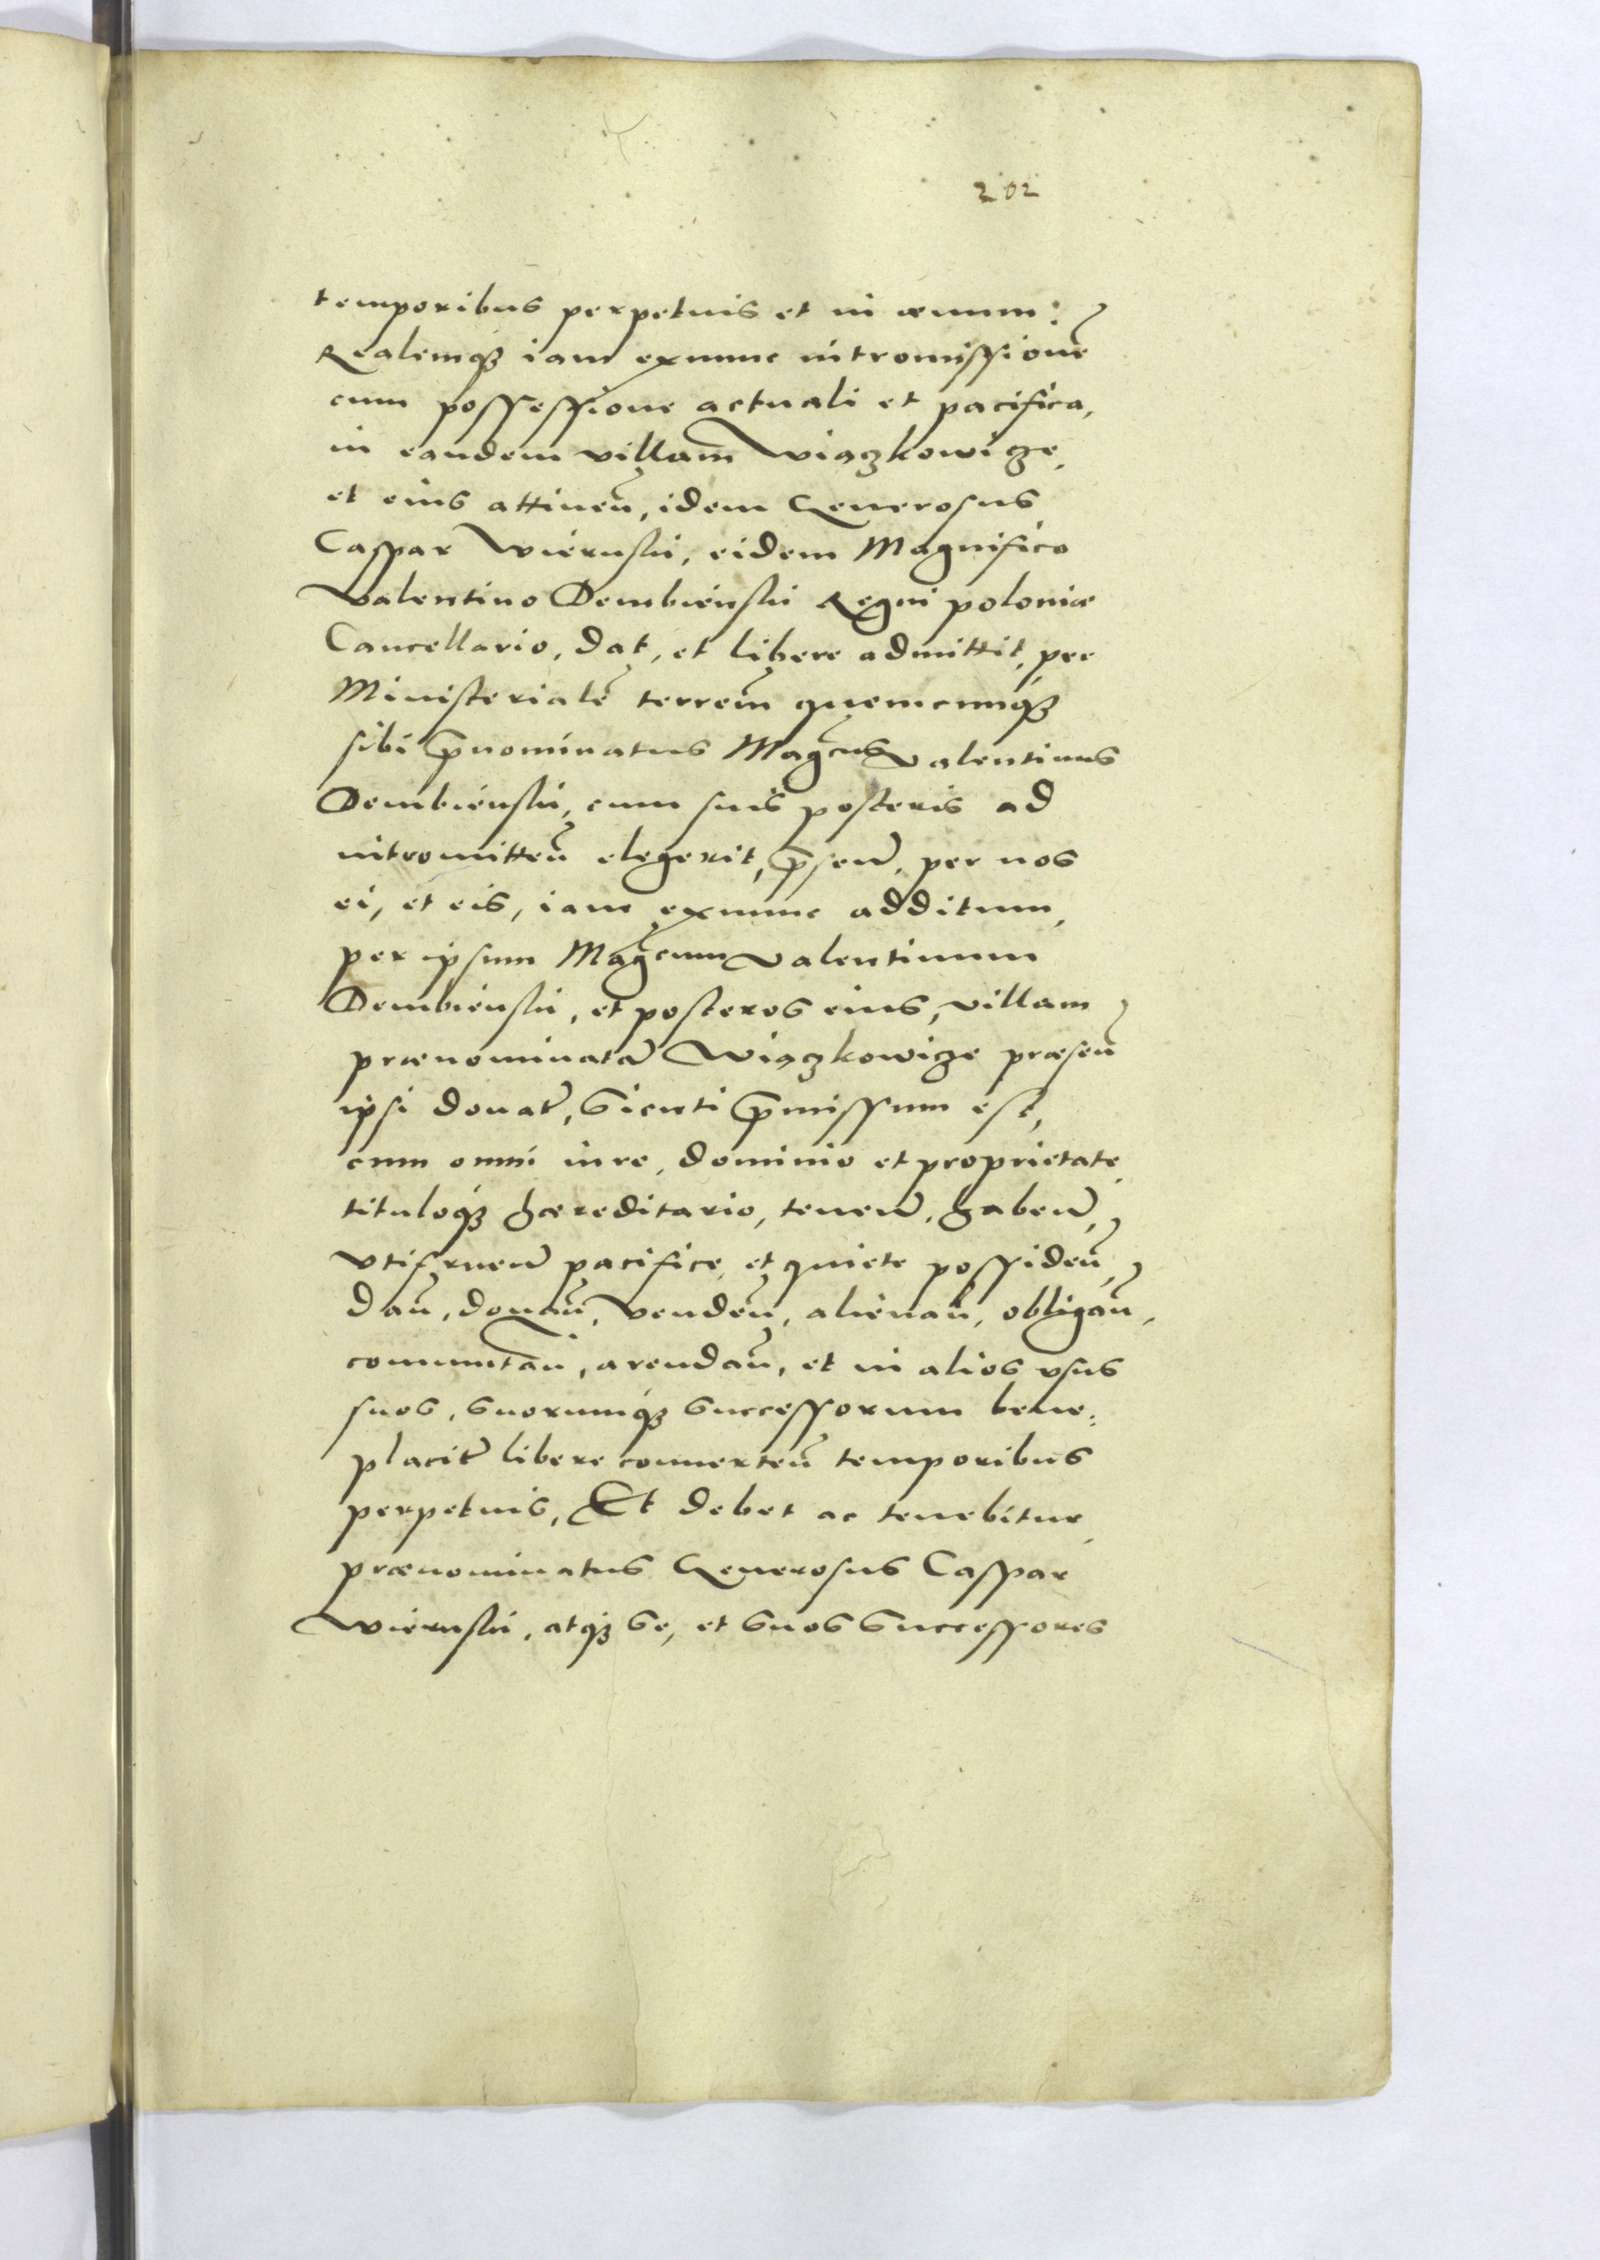 202
temporibus perpetuis et in ævum:
Realemq₃ iam exnunc intromissionē
cum possessione actuali et pacifica,
in eandem villam Wiączkowicze,
et eius attineñ, idem Generosus
Caspar Wiernski, eidem Magnifico
Valentino Dembienski Regni poloniæ
Cancellario, dat, et libere admittit, per
Ministerialē terreñ quemcunq₃
sibi p̄nominatus Magcus Valentinus
Dembienski, cum suis posteris ad
intromitteñ elegerit, p̄señ, per nos
ei, et eis, iam exnunc additum,
per ipsum Magcum Valentinum
Dembienski, et posteros eius, villam
prænominatā Wiączkowicze præseñ
ipsi donat̃, Sicuti p̄missum est,
cum omni iure, dominio et proprietate,
tituloq₃ hæreditario, teneñ, habeñ,
vtifrueñ pacifice, et quiete possideñ,
dañ, donañ, vendeñ, alienañ, obligañ,
comutañ, arendañ, et in alios vsus
suos, Suorumq₃ Successorum bene:
placit̃ libere conuerteñ temporibus
perpetuis, Et debet ac tenebitur,
prænominatus Generosus Caspar
Wiernski, atq₃ Se, et Suos Successores